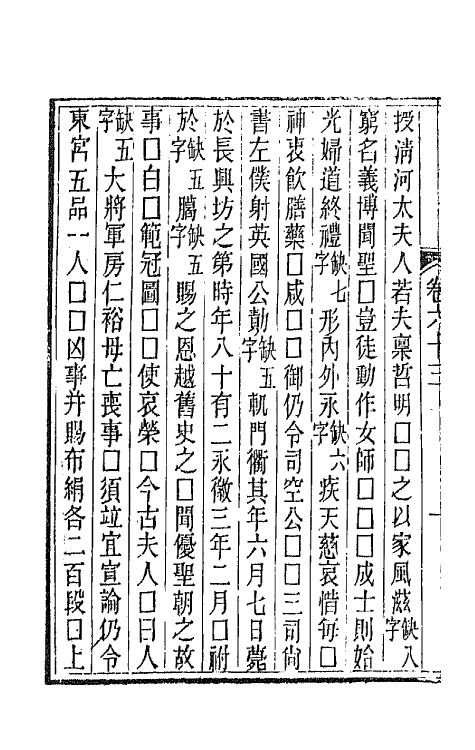 卷六十三
授淸河太夫人若夫稟哲明□□之以家風滋缺入字
窮名義博聞聖□豈徒動作女師□□□成士則始
光婦道終禮缺七字形內外永缺六字疾天慈哀惜每□
神衷飮膳藥□咸□□御仍令司空公□□□三司尙
書左僕射英國公勣缺五字軌門衢其年六月七日薨
於長興坊之第時年八十有二永徽三年二月□祔
於缺五字騰缺五字賜之恩越舊史之□聞優聖朝之故
事□白□範冠圖□□使哀榮□今古夫人□曰人
缺五字大將軍房仁裕母亡喪事□須竝宜宣論仍令
東宮五品一人□□凶事并賜布絹各二百段□上